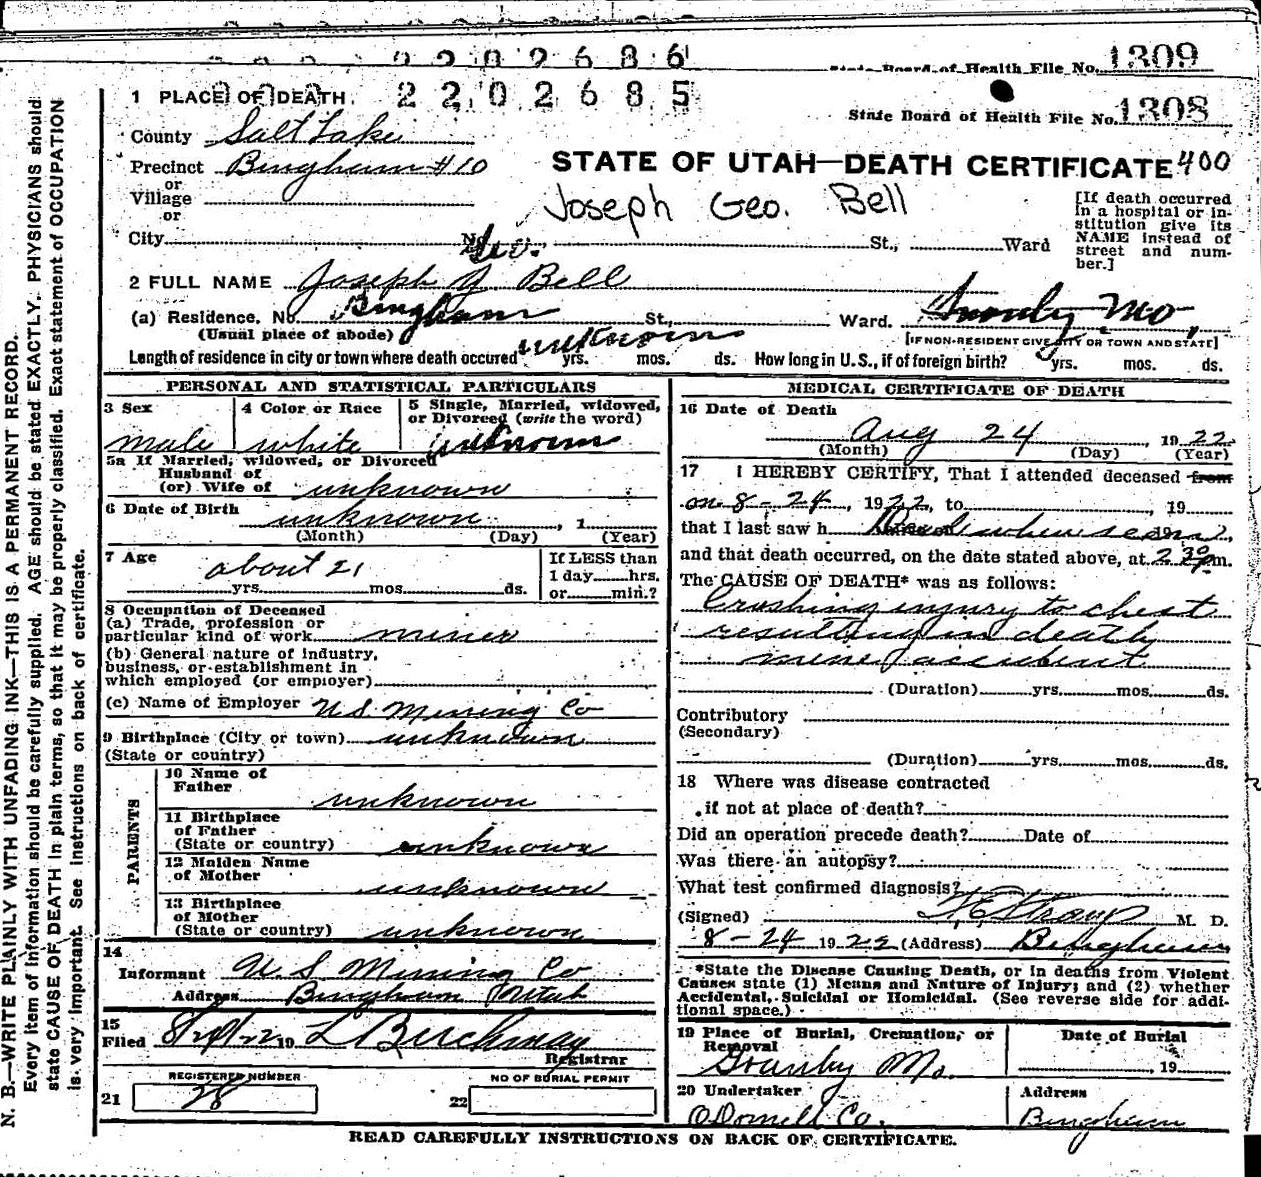 2202686
State Board of Health File No. 1309
2202685
State Board of Health File No. 1308
1 PLACE OF DEATH.
County Salt Lake
Precinct Bingham #10
or
Village
or
City No. St., Ward
STATE OF UTAH—DEATH CERTIFICATE 400
Joseph Geo. Bell
[If death occurred in a hospital or institution give its NAME instead of street and number.]
Geo.
2 FULL NAME Joseph G. Bell
(a) Residence. No. Bingham St., Ward. Granby Mo,
(Usual place of abode) [IF NON-RESIDENT GIVE CITY OR TOWN AND STATE]
Length of residence in city or town where death occured unknown yrs. mos. ds. How long in U.S., if of foreign birth? yrs. mos. ds.
PERSONAL AND STATISTICAL PARTICULARS
3 Sex male
4 Color or Race white
5 Single, Married, widowed, or Divorced (write the word) unknown
5a If Married, widowed, or Divorced
Husband of
(or) Wife of unknown
6 Date of Birth unknown, 1
(Month) (Day) (Year)
7 Age about 21
yrs. mos. ds.
If LESS than
1 day hrs.
or min.?
8 Occupation of Deceased
(a) Trade, profession or
particular kind of work miner
(b) General nature of industry,
business, or establishment in
which employed (or employer)
(c) Name of Employer U.S. Mining Co
9 Birthplace (City or town) unknown
(State or country)
PARENTS
10 Name of
Father unknown
11 Birthplace
of Father
(State or country) unknown
12 Maiden Name
of Mother unknown
13 Birthplace
of Mother
(State or country) unknown
14
Informant U.S Mining Co
Address Bingham Utah
15
Filed 8/29/22 19 L Burchmay
Registrar
REGISTERED NUMBER
21 28
NO OF BURIAL PERMIT
22
MEDICAL CERTIFICATE OF DEATH
16 Date of Death
Aug 24, 1922
(Month) (Day) (Year)
17 I HEREBY CERTIFY, That I attended deceased from
on 8-24, 1922, to , 19
that I last saw h Dead when seen 19 ,
and that death occurred, on the date stated above, at 2 30 pm.
The CAUSE OF DEATH* was as follows:
Crushing injury to chest
resulting in death
mine accident
(Duration) yrs. mos. ds.
Contributory
(Secondary)
(Duration) yrs. mos. ds.
18 Where was disease contracted
if not at place of death?
Did an operation precede death? Date of
Was there an autopsy?
What test confirmed diagnosis?
(Signed) F.E. Straup M. D.
8-24 1922 (Address) Bingham
*State the Disease Causing Death, or in deaths from Violent
Causes state (1) Means and Nature of Injury; and (2) whether
Accidental, Suicidal or Homicidal. (See reverse side for additional space.)
19 Place of Burial, Cremation, or
Removal
Granby Mo.
Date of Burial
, 19
20 Undertaker
O'Donnell Co.
Address
Bingham
READ CAREFULLY INSTRUCTIONS ON BACK OF CERTIFICATE.
N. B.—WRITE PLAINLY WITH UNFADING INK—THIS IS A PERMANENT RECORD.
Every item of information should be carefully supplied. AGE should be stated EXACTLY. PHYSICIANS should
state CAUSE OF DEATH in plain terms, so that it may be properly classified. Exact statement of OCCUPATION
is very important. See instructions on back of certificate.